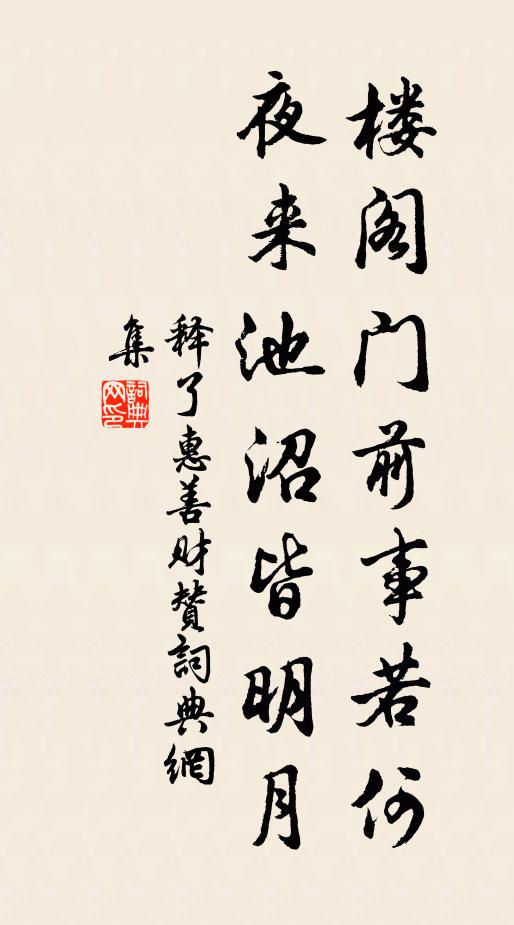 楼阁门前事若何
夜来池沼皆明月
释了惠善财赞詞典網
集
詞典
网印